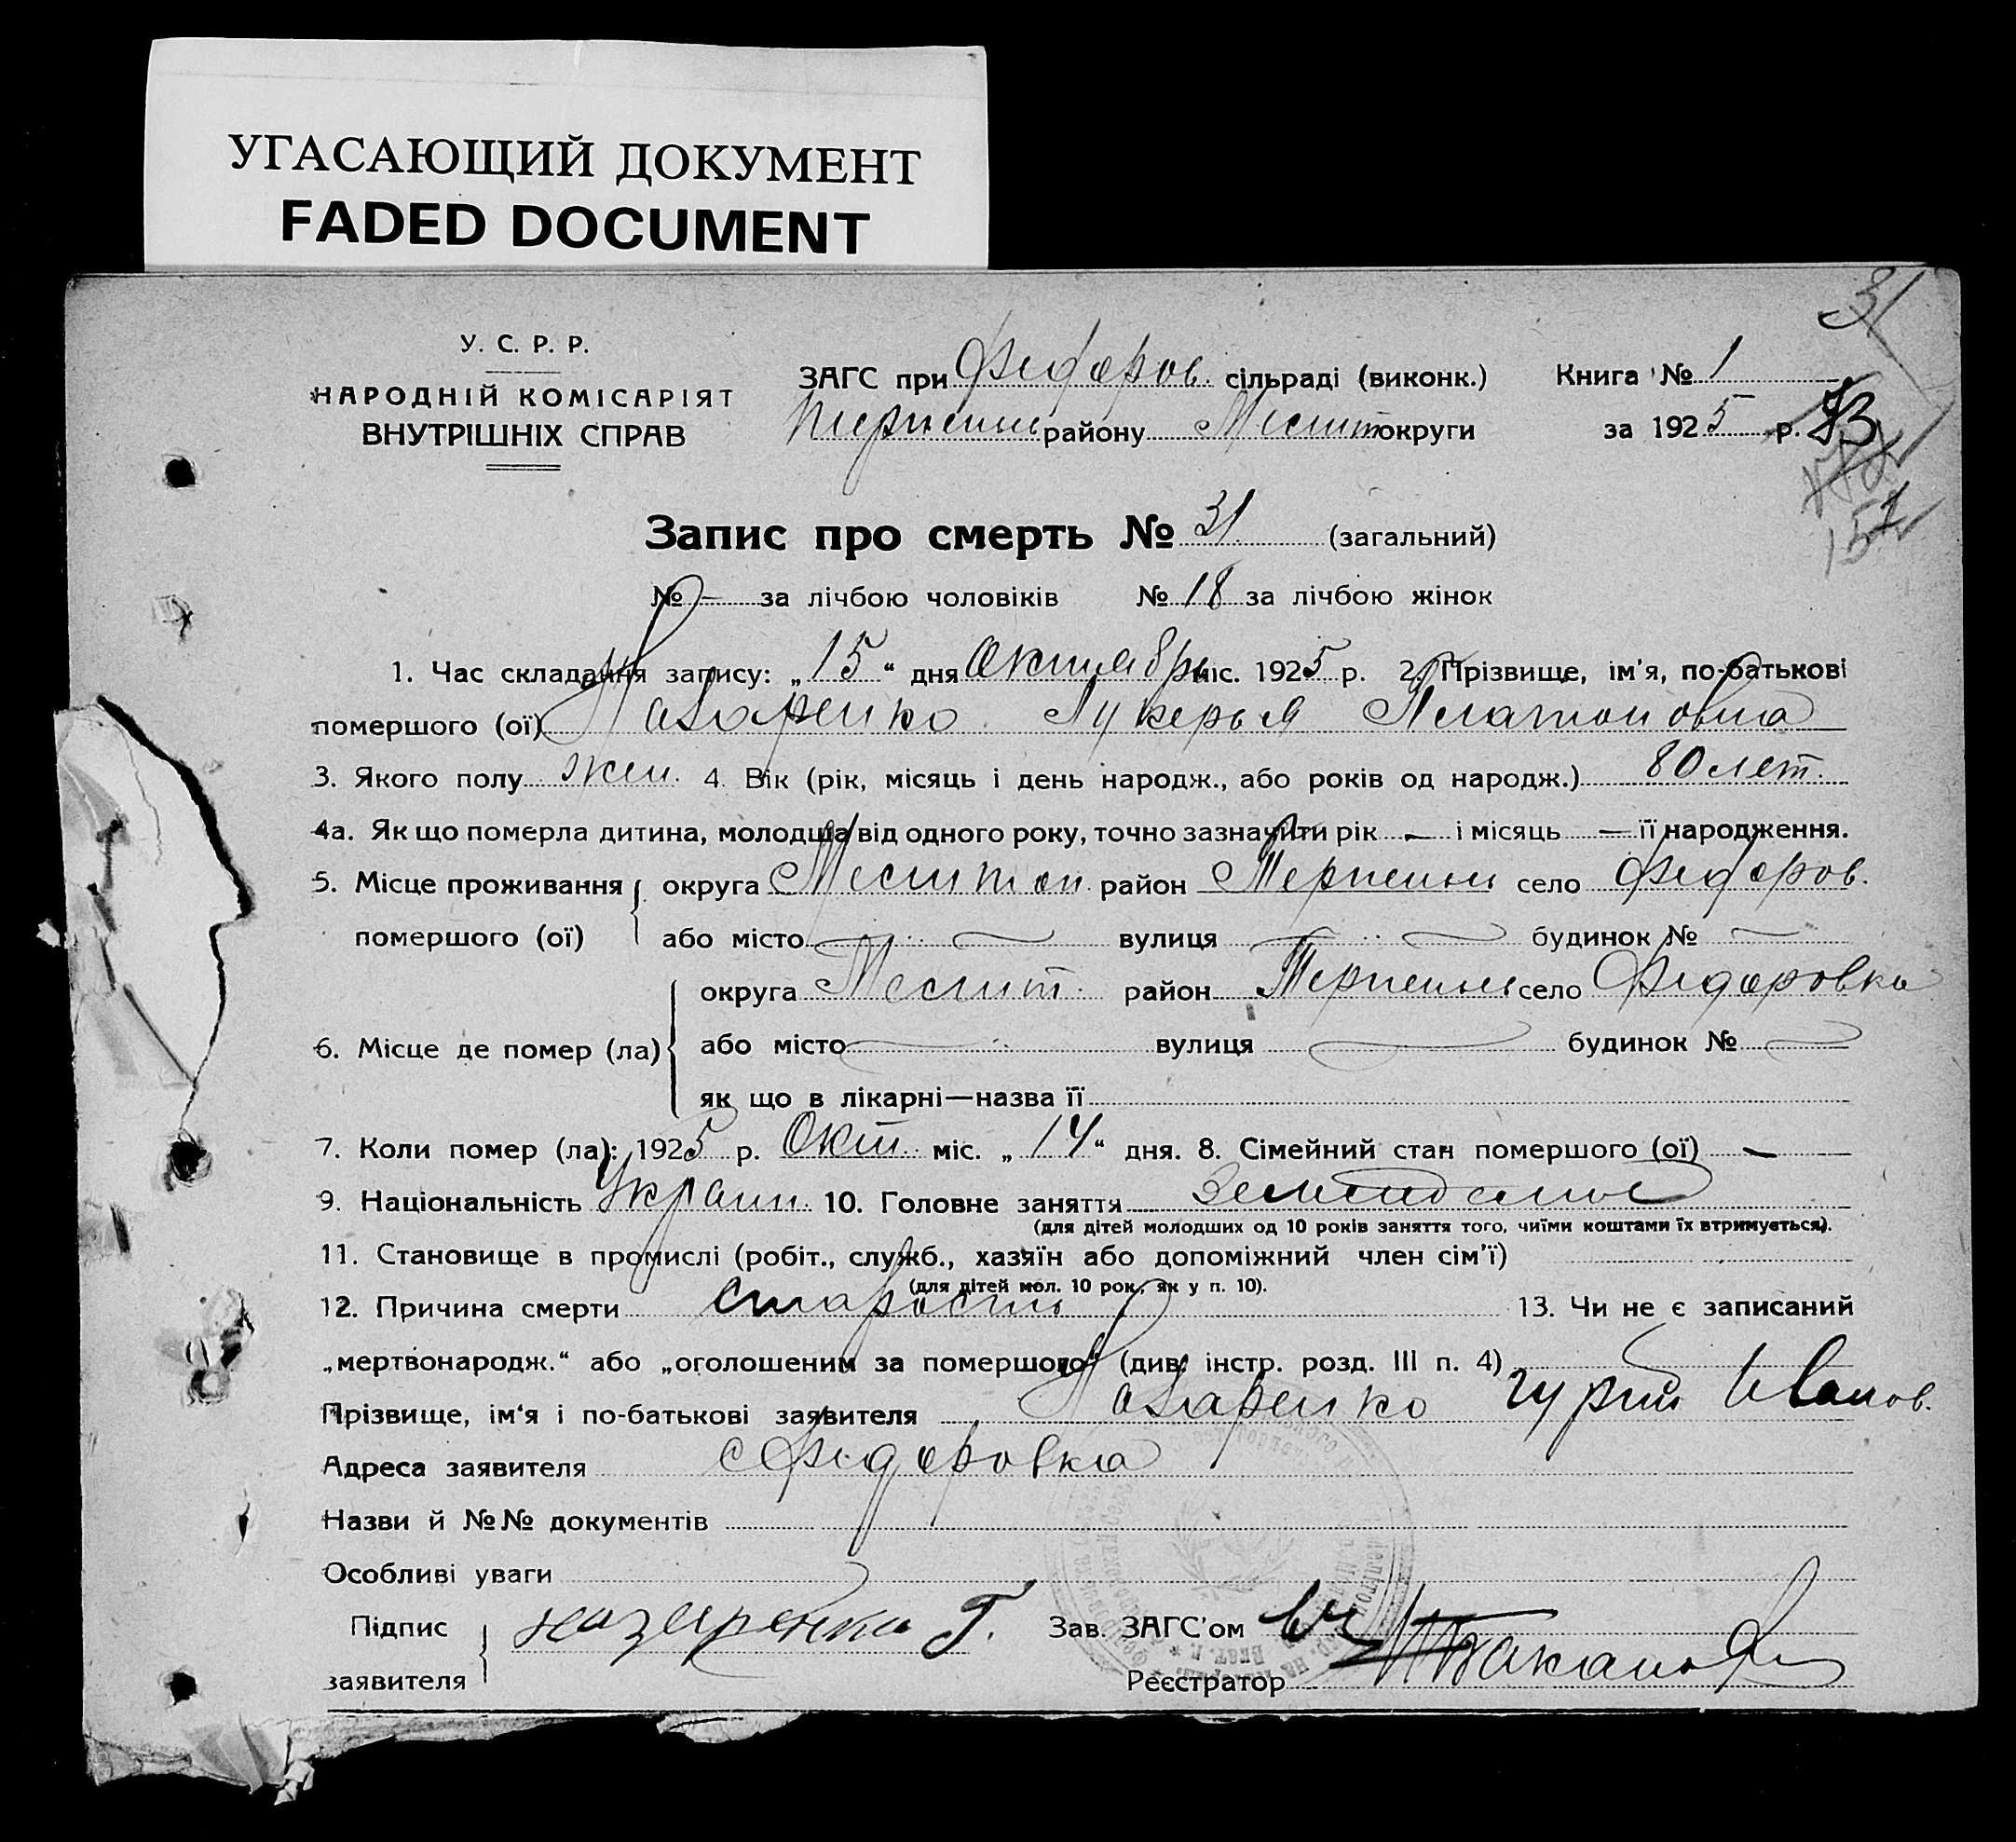 УГАСАЮЩИЙ ДОКУМЕНТ
FADED DOCUMENT
31
У. С. Р. Р.
НАРОДНІЙ КОМІСАРІЯТ
ВНУТРІШНІХ СПРАВ
ЗАГС при Федоров. сільраді (виконк.) Книга № 1
Терпеньє району Мелит округи за 1925 р. 93
152
Запис про смерть № 31 (загальний)
№ – за лічбою чоловіків № 18 за лічбою жінок
1. Час складання запису: „15“ дня Октябрь міс. 1925 р. 2. Прізвище, ім'я, по-батькові
помершого (ої) Назаренко Лукерья Платоновна
3. Якого полу жен. 4. Вік (рік, місяць і день народж., або років од народж.) 80 лет.
4а. Як що померла дитина, молодша від одного року, точно зазначити рік – і місяць – її народження.
5. Місце проживання округа Мелитоп. район Терпеньє село Федоров.
помершого (ої) або місто вулиця будинок № –
округа Мелит. район Терпеньє село Федоровка
6. Місце де помер (ла) або місто вулиця будинок №
як що в лікарні—назва її
7. Коли помер (ла): 1925 р. Окт. міс. „14“ дня. 8. Сімейний стан помершого (ої) –
9. Національність Украин. 10. Головне заняття Земледелие
(для дітей молодших од 10 років заняття того, чиїми коштами їх втримується).
11. Становище в промислі (робіт., служб., хазяїн або допоміжний член сім'ї)
(для дітей мол. 10 рок., як у п. 10).
12. Причина смерти старость 13. Чи не є записаний
„мертвонародж.“ або „оголошеним за помершого“ (див. інстр. розд. III п. 4)
Прізвище, ім'я і по-батькові заявителя Назаренко Гурий Иванов.
Адреса заявителя с Федоровка
Назви й №№ документів
Особливі уваги
Підпис назаренко Г. Зав. ЗАГС'ом
заявителя Реєстратор